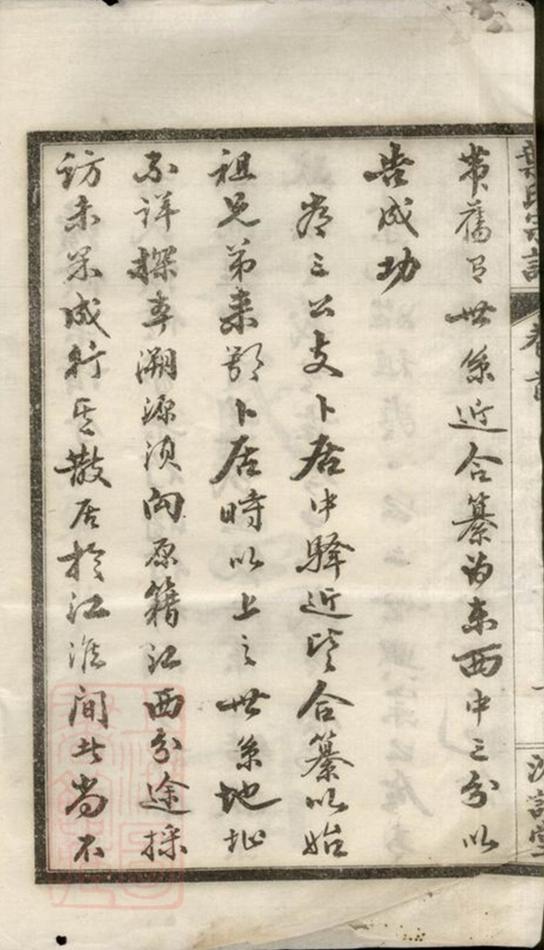 帶舊有世系近合纂为东西中三分以
告成功
三公支卜居中驛近皆合纂以始
祖兄弟来鄂卜居時以上之世系地址
不详探本溯源须向原籍江西分途採
访未果成行至散居於江淮間者尚不
氏宗譜
卷首